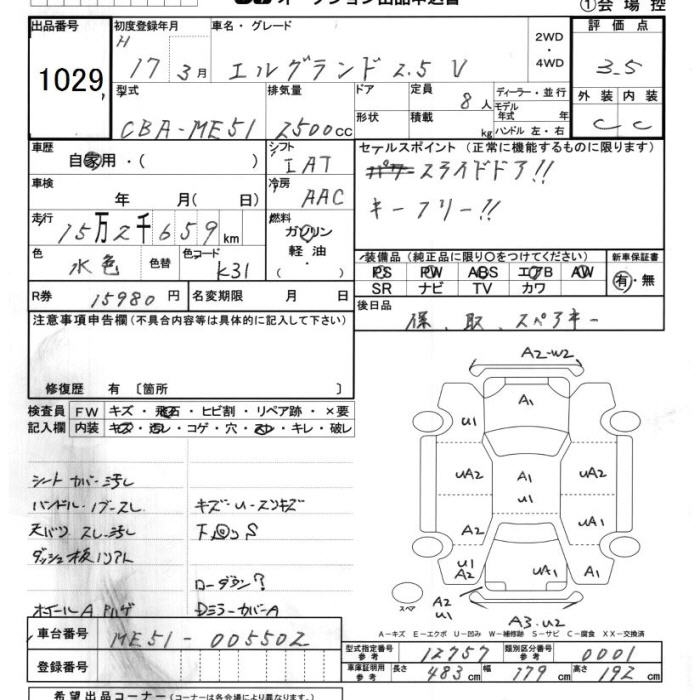 ①会場控
出品番号 初度登録年月 車名・グレード 2WD ・ 4WD 評価点
1029 H 17 3月 エルグランド 2.5 V 3.5
型式 排気量 ドア 定員 8人 ディーラー・並行 外装 内装
CBA-ME51 2500cc 形状 積載 kg モデル年式 年 ハンドル 左・右 C C
車歴 自家用・( ) シフト IAT セールスポイント (正常に機能するものに限ります)
パワースライドドア!!
車検 年 月(日) 冷房 AAC キーフリー!!
走行 15万2千659km 燃料 ガソリン 軽油
色 水色 色替 色コード K31 装備品 (純正品に限り〇をつけてください) 新車保証書
PS PW ABS エアB AW 有・無
SR ナビ TV カワ
R券 15980円 名変期限 月 日 後日品 保、取、スペアキー
注意事項申告欄 (不具合内容等は具体的に記入して下さい)
修復歴 有 〔箇所 〕
検査員 FW キズ・飛石・ヒビ割・リペア跡・×要
記入欄 内装 キズ・汚レ・コゲ・穴・スレ・キレ・破レ
シートカバー汚し
キズ・U・スリキズ
天バリ スレ汚し
ダッシュ板
ローダウン?
ホイールA
DミラーカバーA
A2-W2
A1
U1
UA2 A1 U1 UA2
A2 A2
U1 A2 UA1 A1
A2 U1
スペア
A3.U2
A-キズ E-エクボ U-凹み W-補修跡 S-サビ C-腐食 XX-交換済
車台番号 ME51-005502
登録番号
型式指定番号 参考 12757 類別区分番号 参考 0001
車庫証明用 参考 長さ 483cm 幅 179cm 高さ 192cm
希望出品コーナー (コーナーは各会場により異なります)